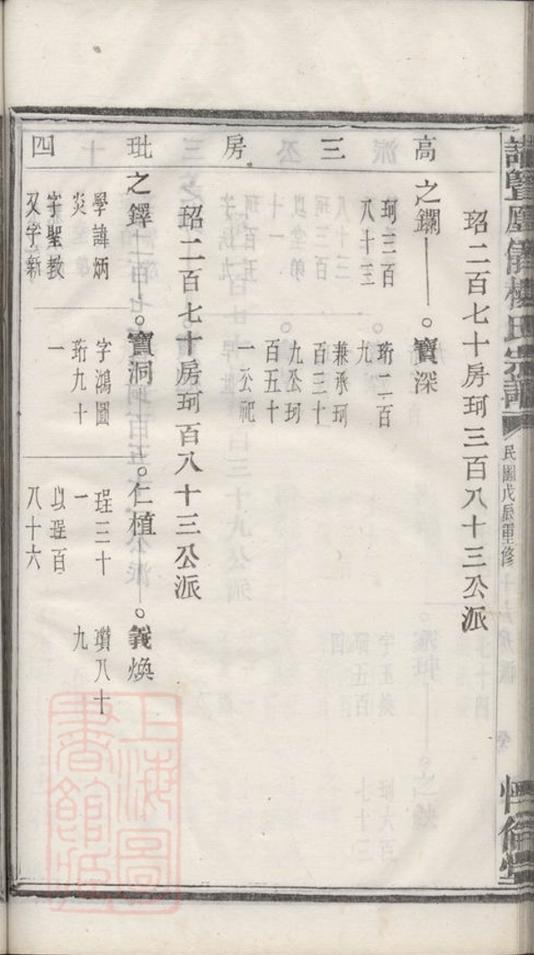 高三房玭四
珆二百七十房珂三百八十三公派
之鑭
珂三百
八十三
寶深
珩二百
九
兼承珂
百三十
九公珂
百五十
一公祀
珆二百七十房珂百八十三公派
之鐸
學諱炳
炎
字聖教
又字新
寶洞
字鴻圖
珩九十
一
仁植
珵三十
一
以珵百
八十六
義煥
瓚八十
九
楊氏宗譜
民國戊辰重修
上海圖書館藏